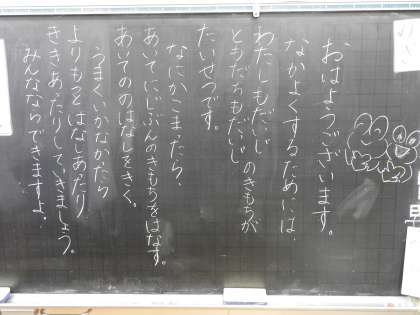 おはようございます。
なかよくするためには、
わたしもだいじ
ともだちもだいじ
のきもちが
たいせつです。
なにかこまったら、
あいてにじぶんのきもちをはなす。
あいてのはなしをきく。
うまくいかなかったら
よりもっとはなしあったり
ききあったりしていきましょう。
みんなならできますよ。